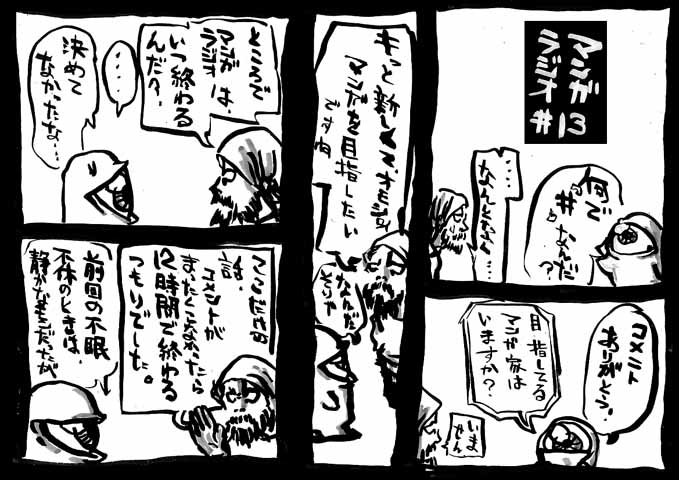 マンガ
ラジオ
#13
何で
#なんだ
?
・・・・
なんとなく…
コメント
ありがとう!
目指してる
マンガ家は
いますか?
いま
せん
もっと新しくて、オモシロイ
マンガを目指したい
ですね
なんだ
そりゃ
ところで
マンガ
ラジオは、
いつ終わる
んだ?
・・・・
決めて
なかったな…
ここだけの
話、
コメントが
まったくこなかったら
12時間で終わる
つもりでした。
前回の不眠
不休のときは、
静かなもんだったが